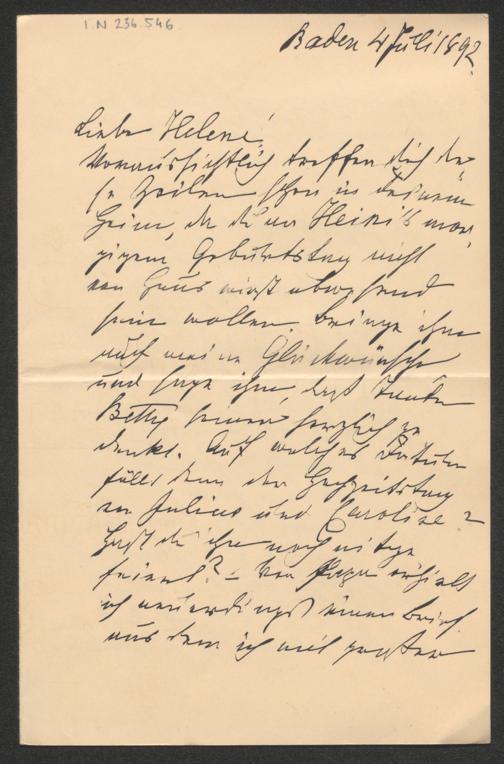 I.N 236.546
Baden 4 Juli 1892.
Liebe Helene!
Voraussichtlich treffen dich die
se Zeilen schon in deinem
Heim, da du an Heini's mor
gigem Geburtstag nicht
von Haus wirst abwesend
sein wollen. Bringe ihm
auch meine Glückwünsche
und sage ihm, daß Tante
Betty seiner herzlich ge
denkt. Auf welches Datum
fällt denn der Hochzeitstag
von Julius und Caroline?
Hast du ihn noch mitge
feiert? – Von Papa erhielt
ich neuerdings einen Brief
aus dem ich mit großer